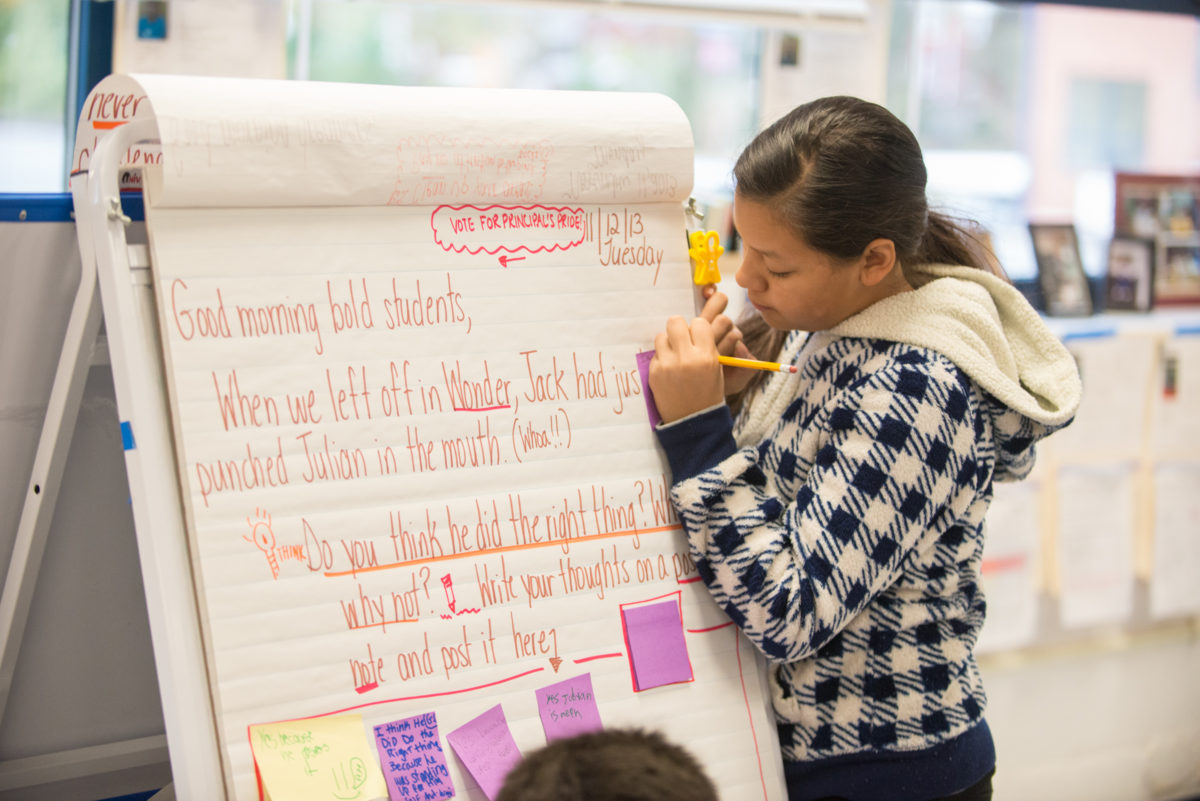 never
VOTE FOR PRINCIPAL'S PRIDE!
11/12/13
Tuesday
Good morning bold students,
When we left off in Wonder, Jack had jus
punched Julian in the mouth. (Whoa!!)
THINK Do you think he did the right thing? Wh
why not? Write your thoughts on a pos
note and post it here
Yes because
he
it
I think He(S)
Did Do the
Right thing
Because he
was standing
up for Him
Self and
yes Julian
is meph